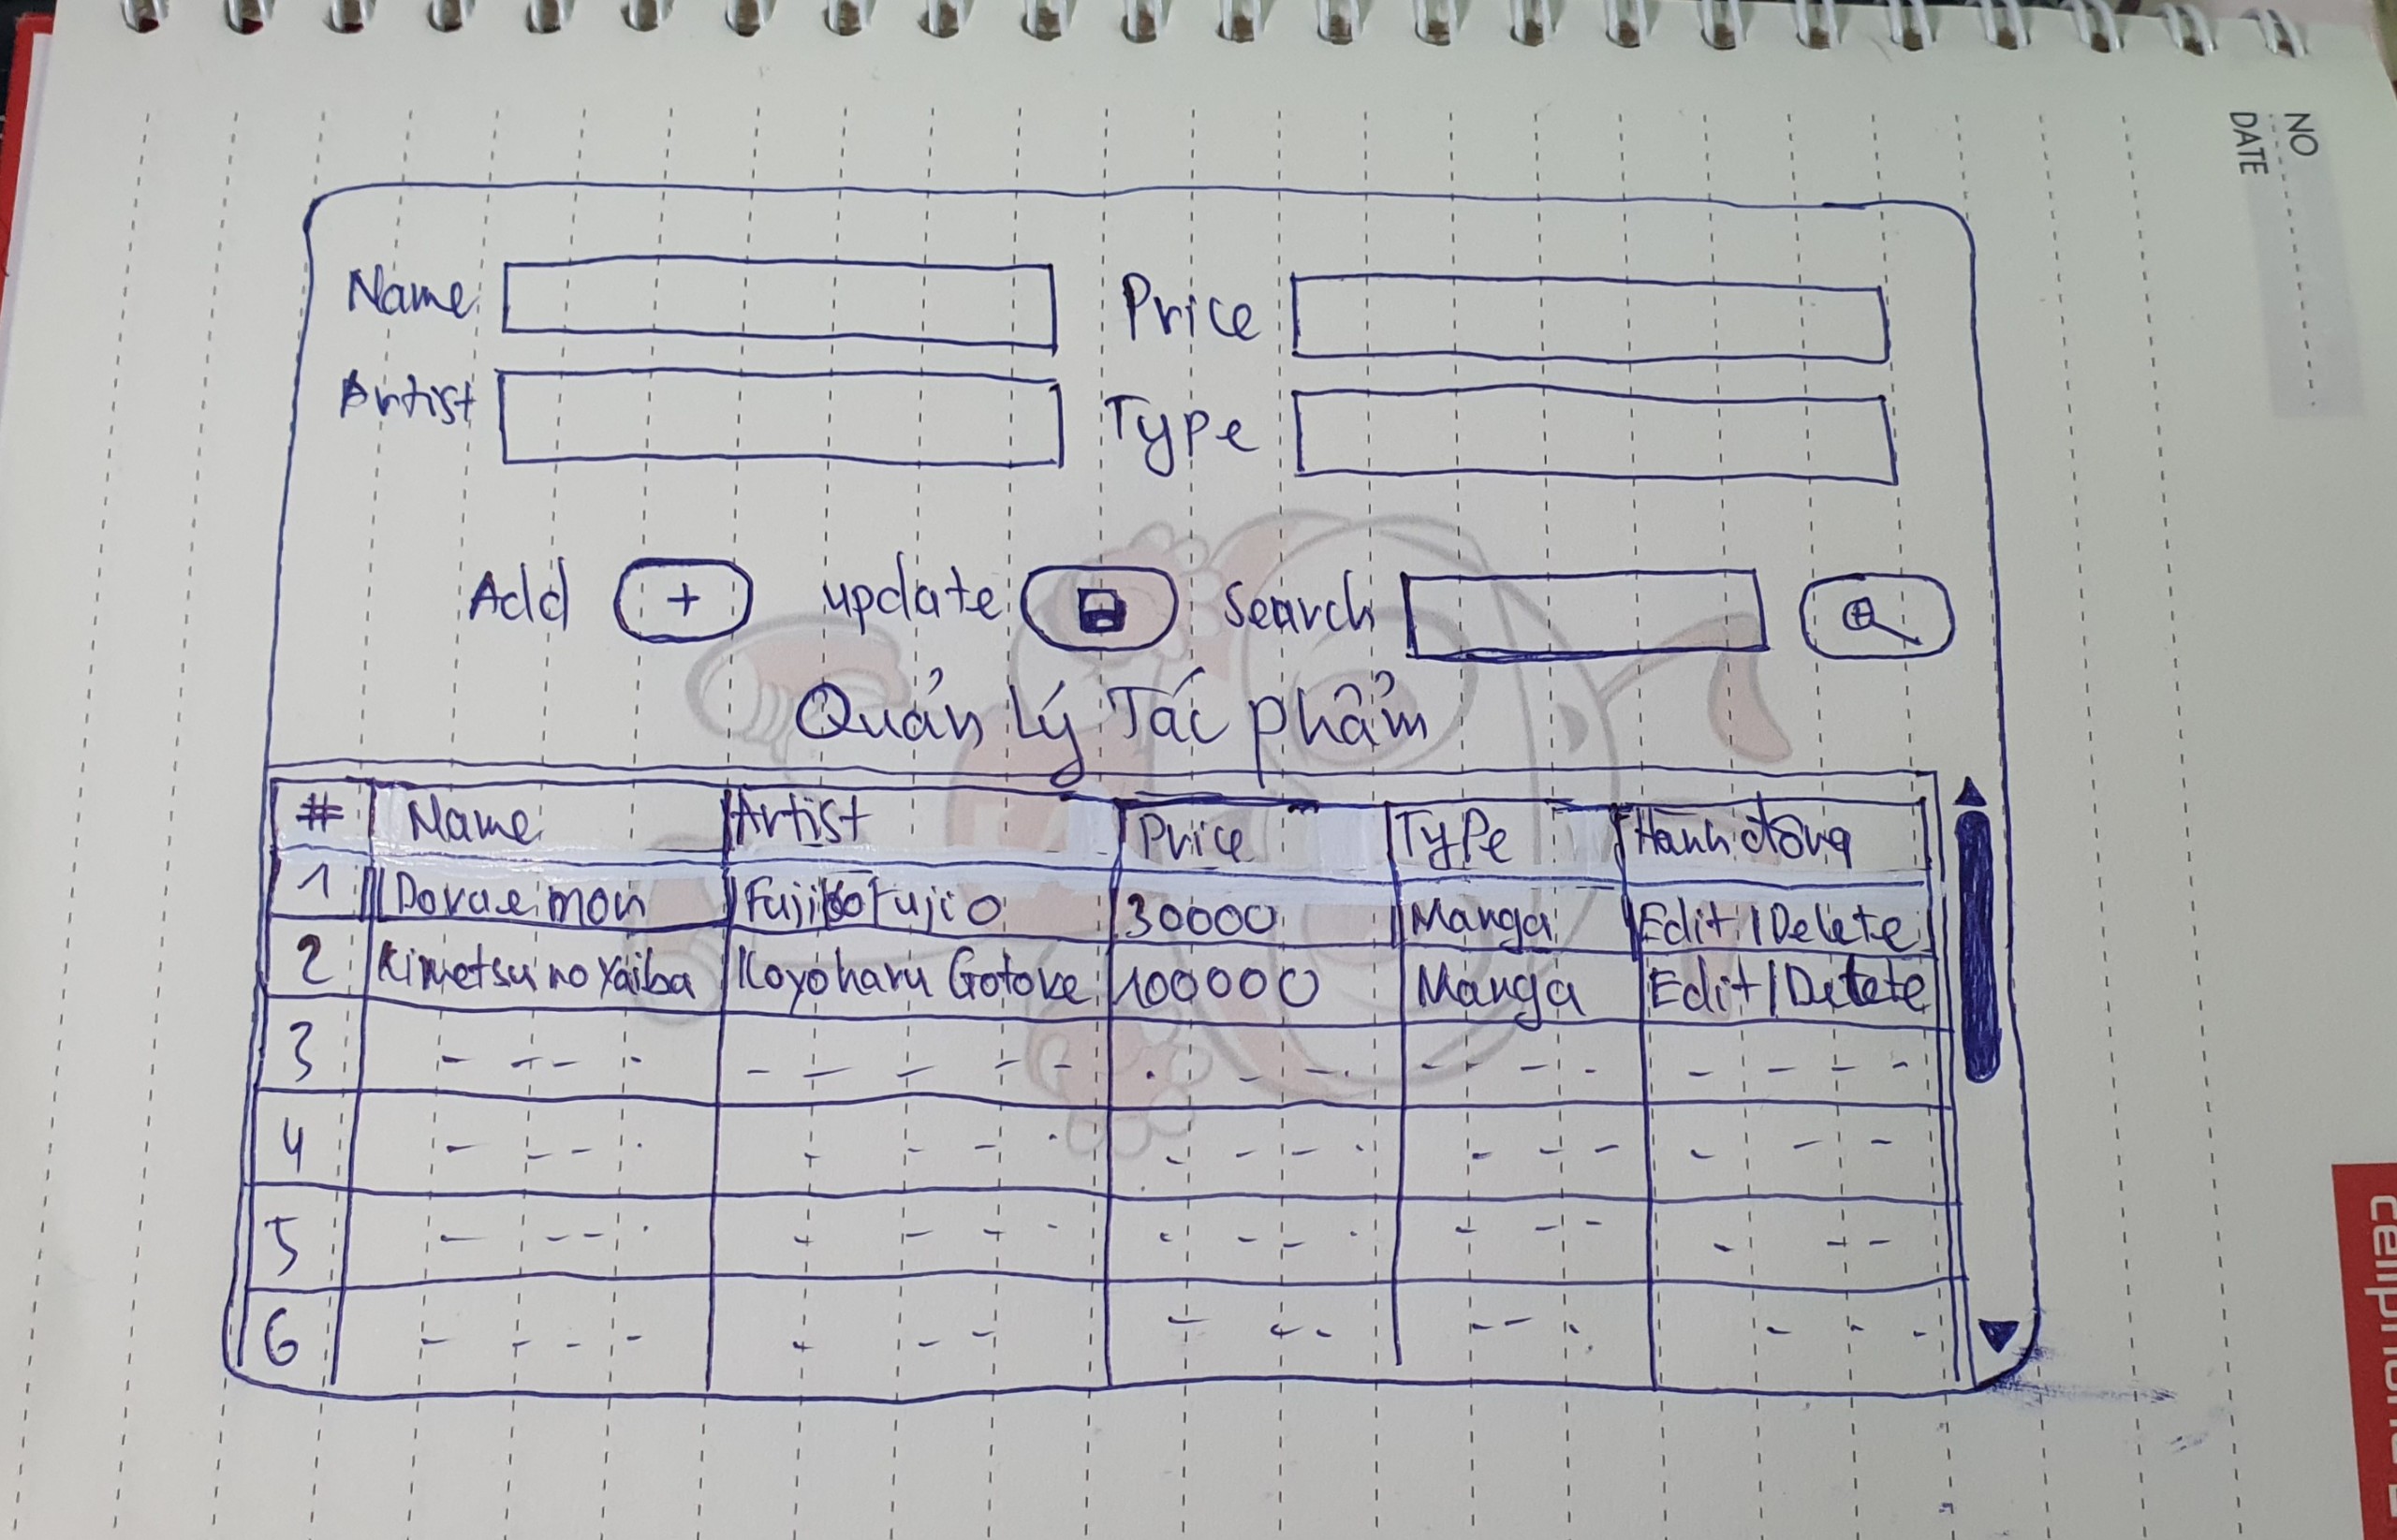 NO
DATE
Name Price
Artist Type
Add + update Search
Quản Lý Tác phẩm
# Name Artist Price Type Hành động
1 Doraemon Fujiko Fujio 30000 Manga Edit / Delete
2 Kimetsu no Yaiba Koyoharu Gotoke 100000 Manga Edit / Delete
3
4
5
6